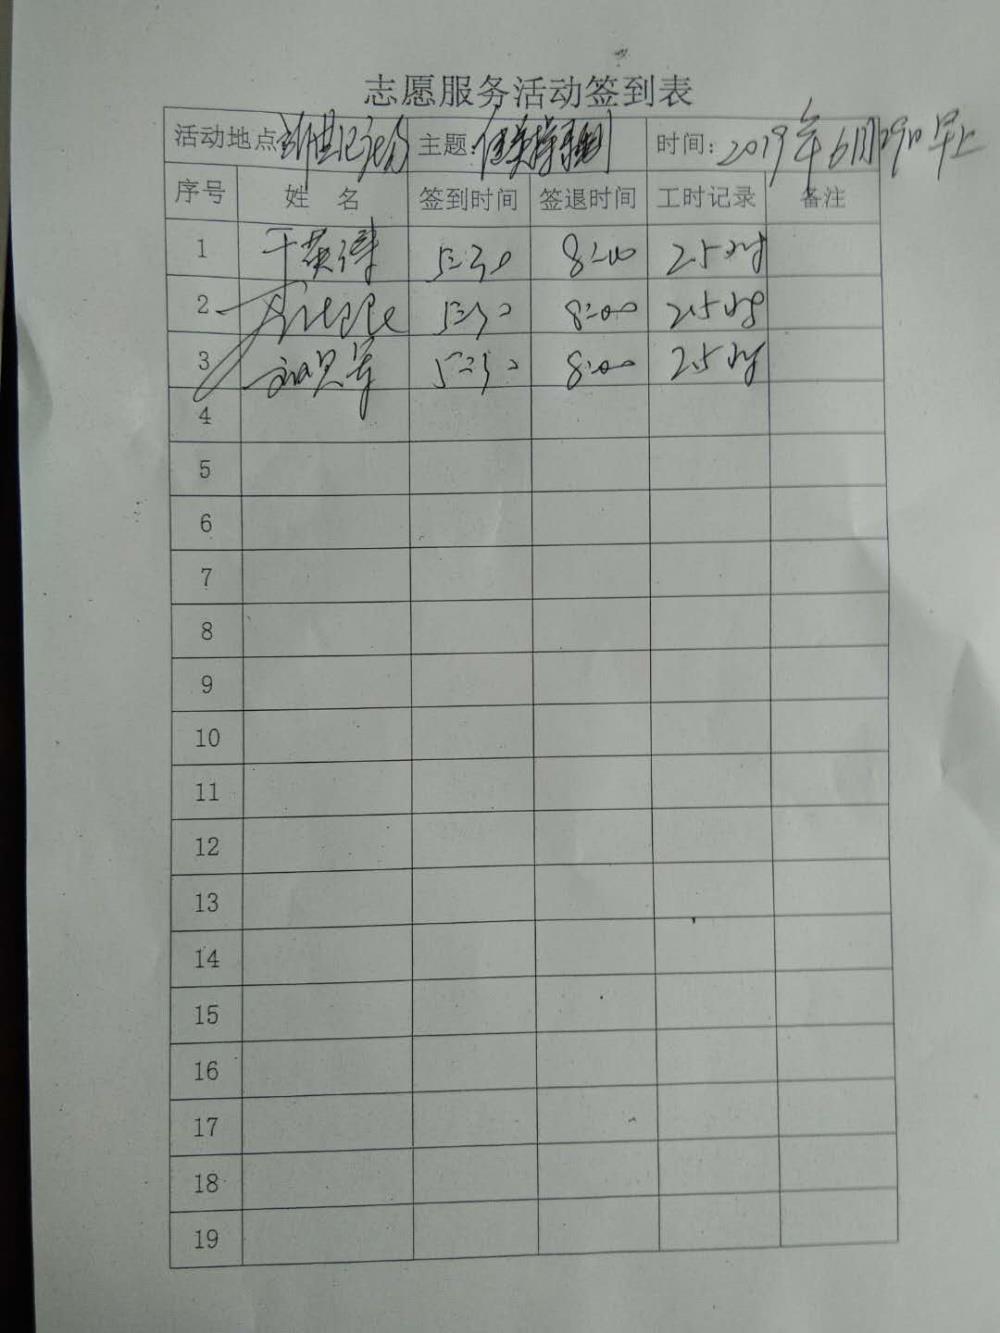 志愿服务活动签到表
活动地点 主题: 时间: 2019年6月29日早上
序号 姓 名 签到时间 签退时间 工时记录 备注
1 5:30 8:00 2.5小时
2 5:30 8:00 2.5小时
3 5:30 8:00 2.5小时
4
5
6
7
8
9
10
11
12
13
14
15
16
17
18
19